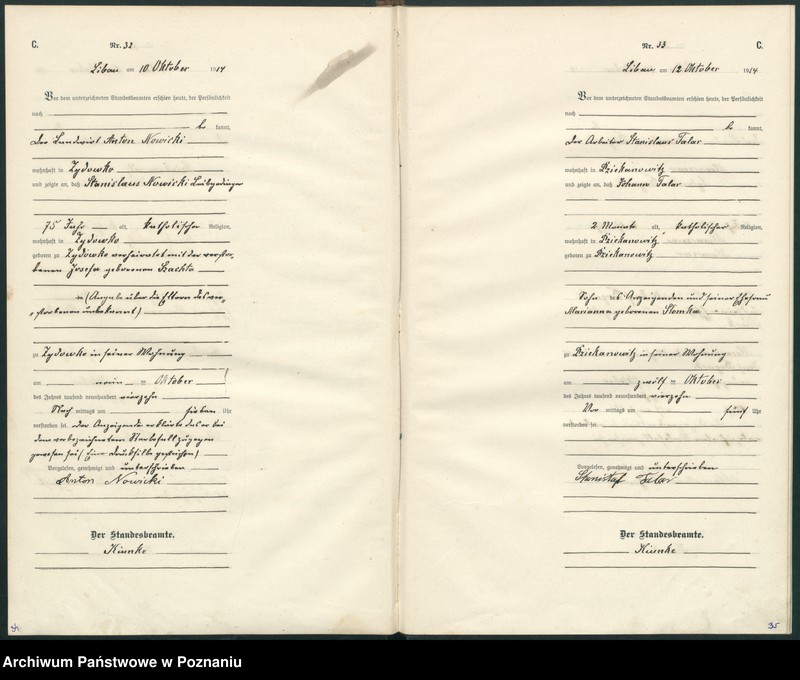 C.
Nr. 32
Libau am 10 Oktober 1914
Vor dem unterzeichneten Standesbeamten erschien heute, der Persönlichkeit
nach
be kannt,
der Landwirt Anton Nowicki
wohnhaft in Zydowko
und zeigte an, daß Stanislaus Nowicki Leibgedinger
75 Jahr alt, katholischer Religion,
wohnhaft in Zydowko
geboren zu Zydowko verheiratet mit der verstor-
benen Josefa geborenen Szachta
(Angabe über die Eltern des ver-
storbenen unbekannt)
zu Zydowko in seiner Wohnung
am neun ten Oktober
des Jahres tausend neunhundert vierzehn
Nach mittags um sieben Uhr
verstorben sei. der Anzeigende erklärte daß er bei
dem vorbezeichneten Sterbefall zugegen
gewesen sei (Eine Druksilbe gestrichen)
Vorgelesen, genehmigt und unterschrieben
Anton Nowicki
Der Standesbeamte.
Kiunke
34
Nr. 33
C.
Libau am 12 Oktober 1914
Vor dem unterzeichneten Standesbeamten erschien heute, der Persönlichkeit
nach
be kannt,
der Arbeiter Stanislaus Talar
wohnhaft in Dziekanowitz
und zeigte an, daß Johann Talar
2 Monate alt, katholischer Religion,
wohnhaft in Dziekanowitz
geboren zu Dziekanowitz
Sohn des Anzeigenden und seiner Ehefrau
Marianna geborenen Slomka
zu Dziekanowitz in seiner Wohnung
am zwölf ten Oktober
des Jahres tausend neunhundert vierzehn
Vor mittags um fünf Uhr
verstorben sei.
Vorgelesen, genehmigt und unterschrieben
Stanisław Talar
Der Standesbeamte.
Kiunke
35
Archiwum Państwowe w Poznaniu